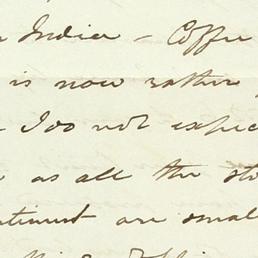 India – Coffee
is now rather
I do not expec
as all the sto
timent are small